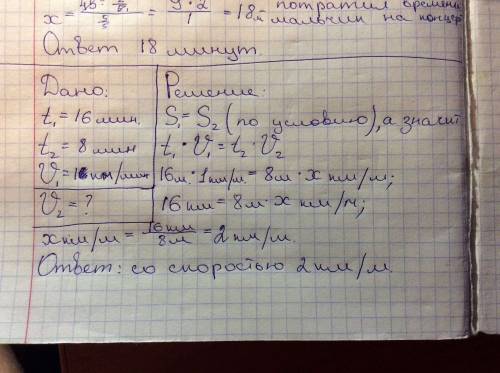 x = = 9·2/1 = 18м - потратил времени
мальчик на концерт
Ответ 18 минут.
Дано:
t₁ = 16 мин.
t₂ = 8 мин
V₁ = 1 км/мин
V₂ = ?
Решение:
S₁ = S₂ (по условию), а значит
t₁ · V₁ = t₂ · V₂
16м · 1 км/м = 8м · x км/м;
16 км = 8м · x км/м;
x км/м = 16 км/8м = 2 км/м.
Ответ: со скоростью 2 км/м.